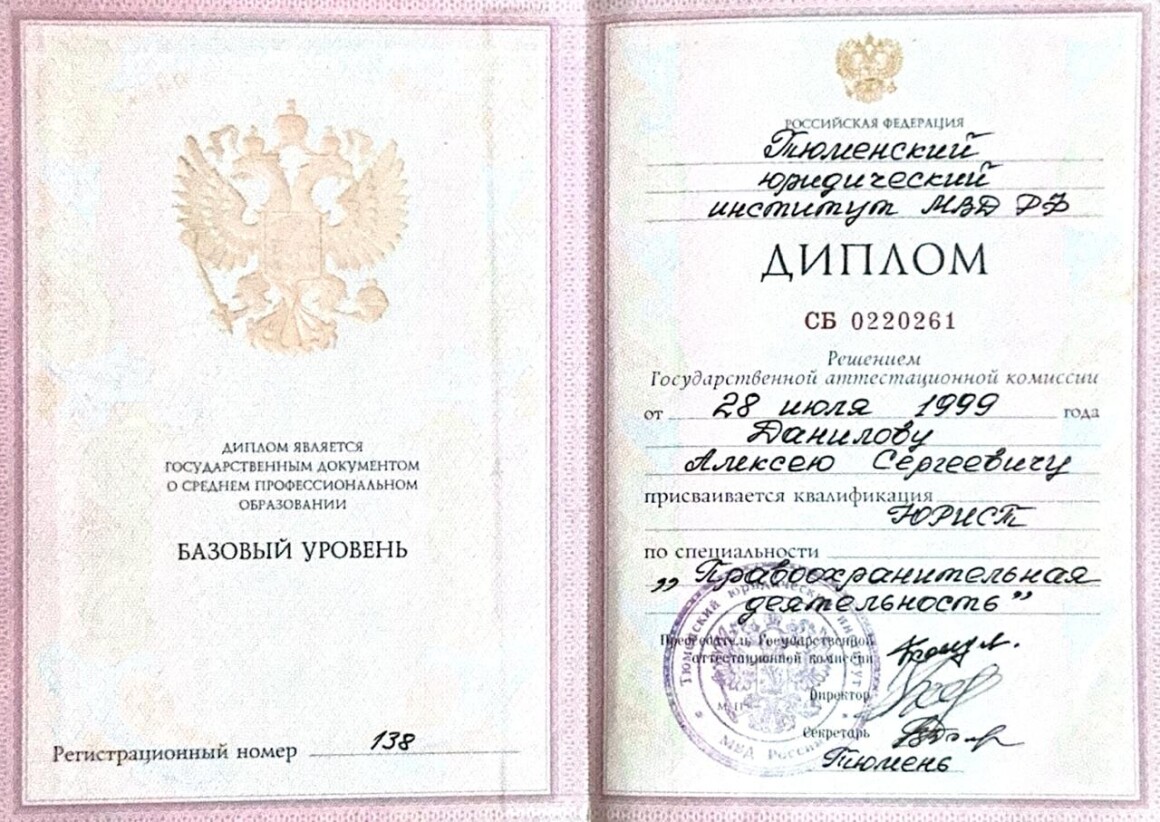 ДИПЛОМ ЯВЛЯЕТСЯ
ГОСУДАРСТВЕННЫМ ДОКУМЕНТОМ
О СРЕДНЕМ ПРОФЕССИОНАЛЬНОМ
ОБРАЗОВАНИИ
БАЗОВЫЙ УРОВЕНЬ
Регистрационный номер 138
РОССИЙСКАЯ ФЕДЕРАЦИЯ
Тюменский
юридический
институт МВД РФ
ДИПЛОМ
СБ 0220261
Решением
Государственной аттестационной комиссии
от 28 июля 1999 года
Данилову
Алексею Сергеевичу
присваивается квалификация
ЮРИСТ
по специальности
„Правоохранительная
деятельность”
Председатель Государственной
аттестационной комиссии
Директор
М. П.
Секретарь
Тюмень
Тюменский юридический институт
МВД России